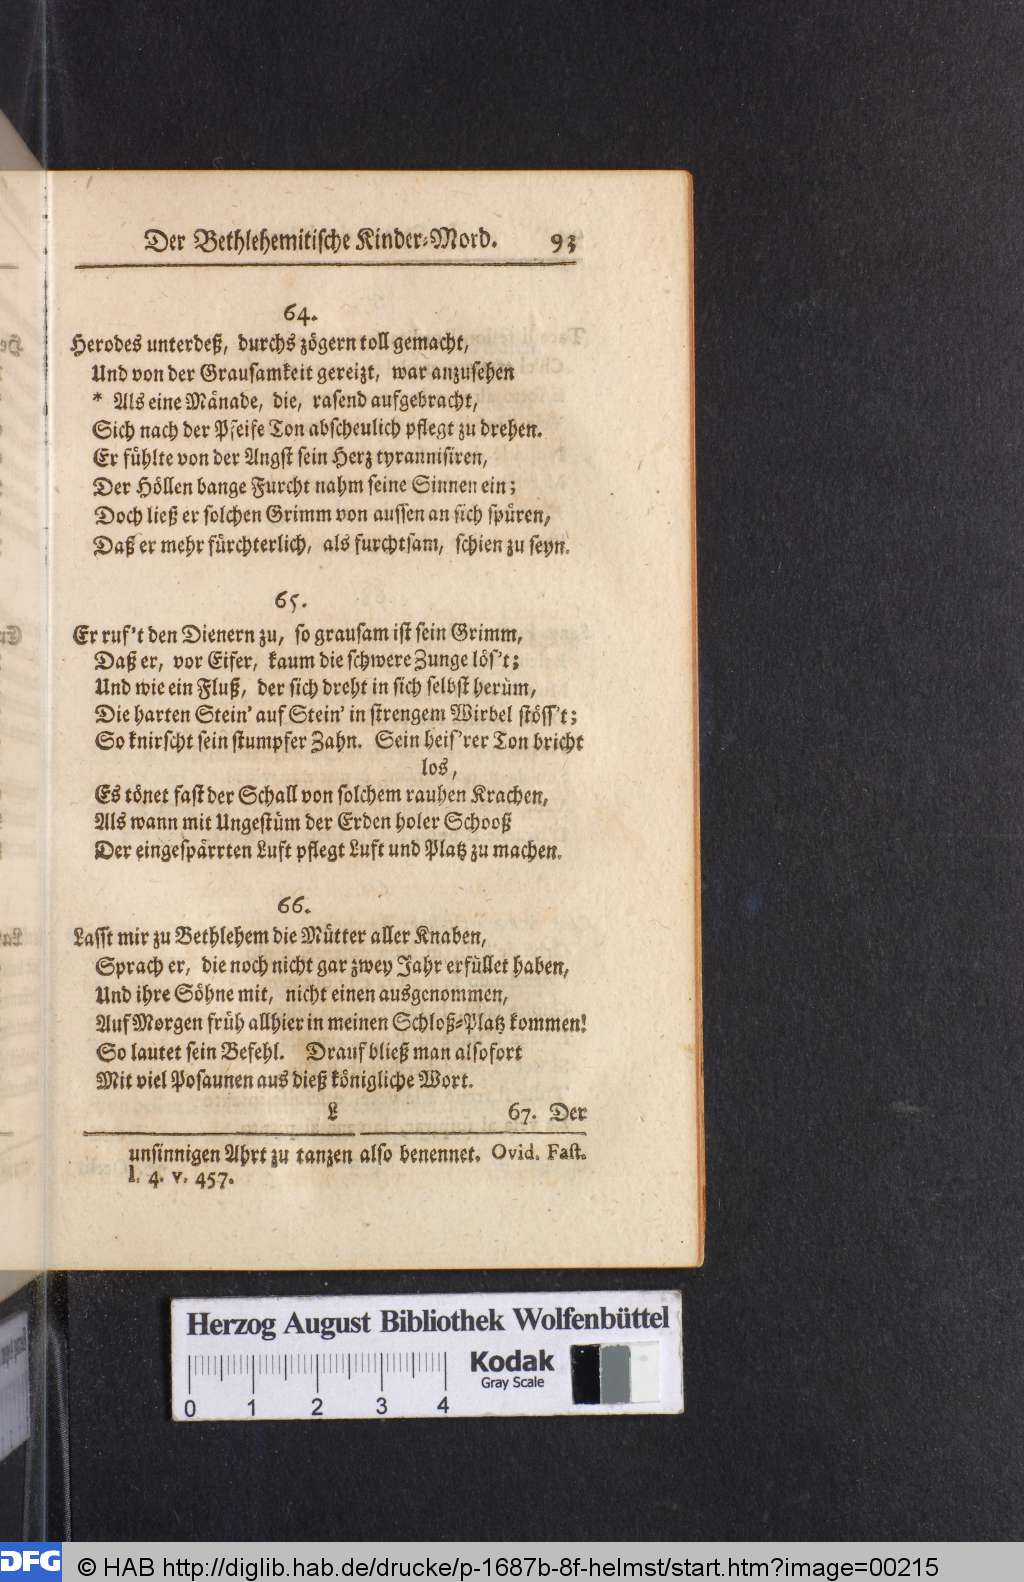 Der Bethlehemitische Kinder-Mord. 93
64.
Herodes unterdeß, durchs zögern toll gemacht,
Und von der Grausamkeit gereizt, war anzusehen
* Als eine Mänade, die, rasend aufgebracht,
Sich nach der Pfeife Ton abscheulich pflegt zu drehen.
Er fühlte von der Angst sein Herz tyrannisiren,
Der Höllen bange Furcht nahm seine Sinnen ein;
Doch ließ er solchen Grimm von aussen an sich spüren,
Daß er mehr fürchterlich, als furchtsam, schien zu seyn.
65.
Er ruf't den Dienern zu, so grausam ist sein Grimm,
Daß er, vor Eifer, kaum die schwere Zunge lös't;
Und wie ein Fluß, der sich dreht in sich selbst herüm,
Die harten Stein' auf Stein' in strengem Wirbel stöss't;
So knirscht sein stumpfer Zahn. Sein heis'rer Ton bricht
los,
Es tönet fast der Schall von solchem rauhen Krachen,
Als wann mit Ungestüm der Erden holer Schooß
Der eingespärrten Luft pflegt Luft und Platz zu machen.
66.
Lasst mir zu Bethlehem die Mütter aller Knaben,
Sprach er, die noch nicht gar zwey Jahr erfüllet haben,
Und ihre Söhne mit, nicht einen ausgenommen,
Auf Morgen früh allhier in meinen Schloß-Platz kommen!
So lautet sein Befehl. Drauf bließ man alsofort
Mit viel Posaunen aus dieß königliche Wort.
L 67. Der
unsinnigen Ahrt zu tanzen also benennet. Ovid. Fast.
l. 4. v. 457.
Herzog August Bibliothek Wolfenbüttel
Kodak
Gray Scale
0 1 2 3 4
DFG © HAB http://diglib.hab.de/drucke/p-1687b-8f-helmst/start.htm?image=00215